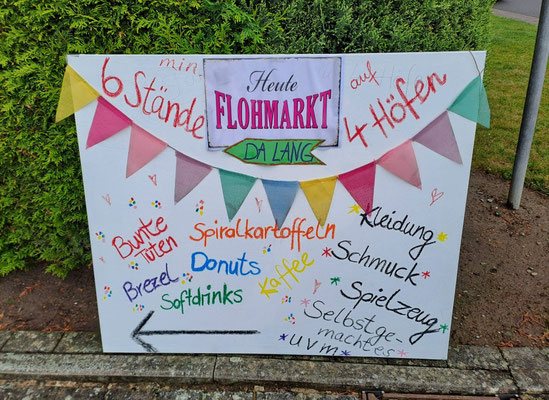 min.
6 Stände
Heute
FLOHMARKT
DA LANG
auf
4 Höfen
Bunte
Tüten
Brezel
Spiralkartoffeln
Donuts
Kaffee
Softdrinks
Kleidung
Schmuck
Spielzeug
Selbstge-
machtes
uvm